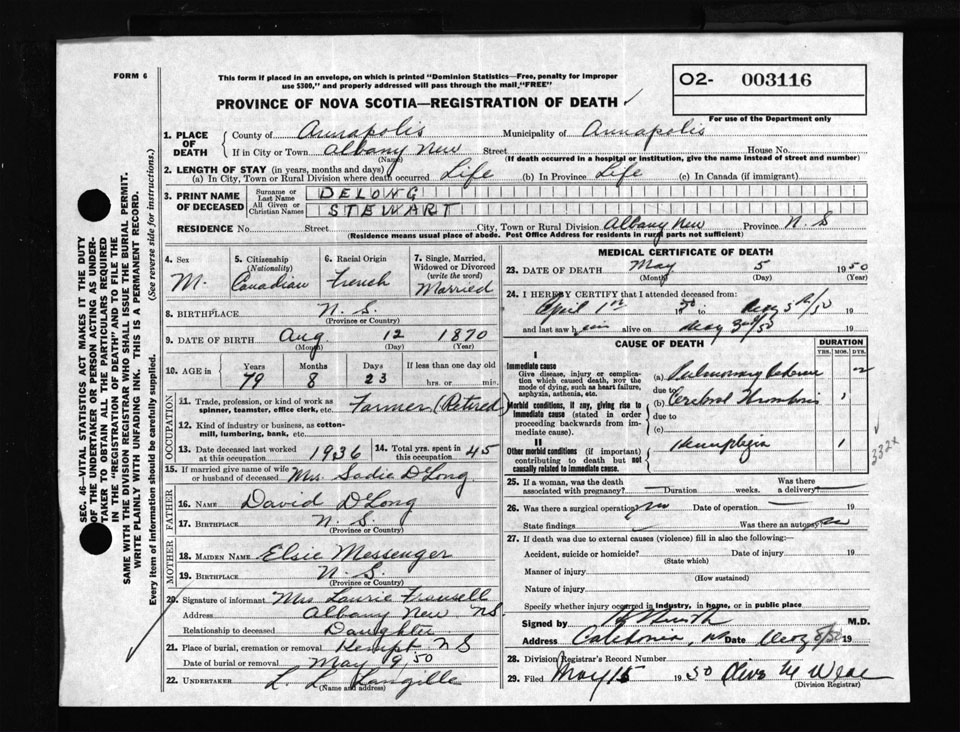 FORM 6
This form if placed in an envelope, on which is printed "Dominion Statistics—Free, penalty for improper
use $300," and properly addressed will pass through the mail, "FREE"
O2- 003116
PROVINCE OF NOVA SCOTIA—REGISTRATION OF DEATH
For use of the Department only
SEC. 46—VITAL STATISTICS ACT MAKES IT THE DUTY
OF THE UNDERTAKER OR PERSON ACTING AS UNDER-
TAKER TO OBTAIN ALL THE PARTICULARS REQUIRED
IN THE "REGISTRATION OF DEATH" AND TO FILE THE
SAME WITH THE DIVISION REGISTRAR WHO SHALL ISSUE THE BURIAL PERMIT.
WRITE PLAINLY WITH UNFADING INK. THIS IS A PERMANENT RECORD.
Every item of information should be carefully supplied. (See reverse side for instructions.)
1. PLACE OF DEATH { County of Annapolis Municipality of Annapolis
If in City or Town Albany New Street House No.
(Name) (If death occurred in a hospital or institution, give the name instead of street and number)
2. LENGTH OF STAY (in years, months and days)
(a) In City, Town or Rural Division where death occurred Life (b) In Province Life (c) In Canada (if immigrant)
3. PRINT NAME OF DECEASED { Surname or Last Name DELONG
All Given or Christian Names STEWART
RESIDENCE No. Street City, Town or Rural Division Albany New Province N S
(Residence means usual place of abode. Post Office Address for residents in rural parts not sufficient)
4. Sex M.
5. Citizenship (Nationality) Canadian
6. Racial Origin French
7. Single, Married, Widowed or Divorced (write the word) Married
8. BIRTHPLACE N. S.
(Province or Country)
9. DATE OF BIRTH Aug 12 1870
(Month) (Day) (Year)
10. AGE in Years Months Days If less than one day old
79 8 23 hrs. or min.
OCCUPATION
11. Trade, profession, or kind of work as
spinner, teamster, office clerk, etc. Farmer (Retired)
12. Kind of industry or business, as cotton-
mill, lumbering, bank, etc.
13. Date deceased last worked at this occupation 1936
14. Total yrs. spent in this occupation 45
15. If married give name of wife
or husband of deceased Mrs. Sadie DeLong
FATHER
16. NAME David DeLong
17. BIRTHPLACE N. S.
(Province or Country)
MOTHER
18. MAIDEN NAME Elsie Messenger
19. BIRTHPLACE N. S.
(Province or Country)
20. Signature of informant Mrs Laurie
Address Albany New NS
Relationship to deceased Daughter
21. Place of burial, cremation or removal Kempt NS
Date of burial or removal May 9 50
22. UNDERTAKER L. L. Langille
(Name and address)
MEDICAL CERTIFICATE OF DEATH
23. DATE OF DEATH May 5 1950
(Month) (Day) (Year)
24. I HEREBY CERTIFY that I attended deceased from:
April 1st 1950 to May 5th/50 19
and last saw him alive on May 3rd/50 19
CAUSE OF DEATH
DURATION
YRS. MOS. DYS.
I
Immediate cause
Give disease, injury or complica-
tion which caused death, not the
mode of dying, such as heart failure,
asphyxia, asthenia, etc.
(a) Pulmonary Oedema
due to
Morbid conditions, if any, giving rise to
immediate cause (stated in order
proceeding backwards from im-
mediate cause).
(b) Cerebral Thrombosis 1
due to
(c)
II
Other morbid conditions (if important)
contributing to death but not
causally related to immediate cause.
Hemiplegia 1
332x
25. If a woman, was the death
associated with pregnancy? Duration weeks. Was there a delivery?
26. Was there a surgical operation? no Date of operation 19
State findings Was there an autopsy? no
27. If death was due to external causes (violence) fill in also the following:—
Accident, suicide or homicide? Date of injury 19
(State which)
Manner of injury
(How sustained)
Nature of injury
Specify whether injury occurred in industry, in home, or in public place
Signed by M.D.
Address Caledonia, NS Date 8/50 19
28. Division Registrar's Record Number
29. Filed May 15 1950
(Division Registrar)